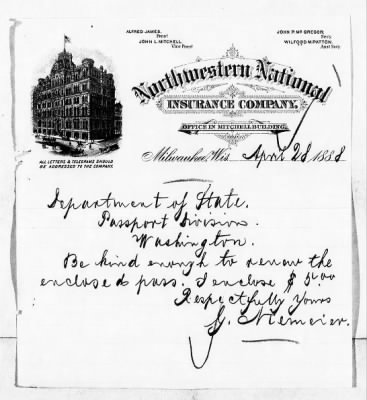 ALFRED JAMES,
Prest
JOHN L. MITCHELL,
Vice Prest
JOHN P. McGREGOR,
Secy.
WILFORD M. PATTON,
Asst Secy.
Northwestern National
INSURANCE COMPANY,
OFFICE IN MITCHELL BUILDING,
ALL LETTERS & TELEGRAMS SHOULD
BE ADDRESSED TO THE COMPANY.
Milwaukee, Wis. April 28 1888
Department of State.
Passport Division.
Washington.
Be kind enough to renew the
enclosed pass. I enclose $ 5.00
Respectfully Yours
G. Niemeier.